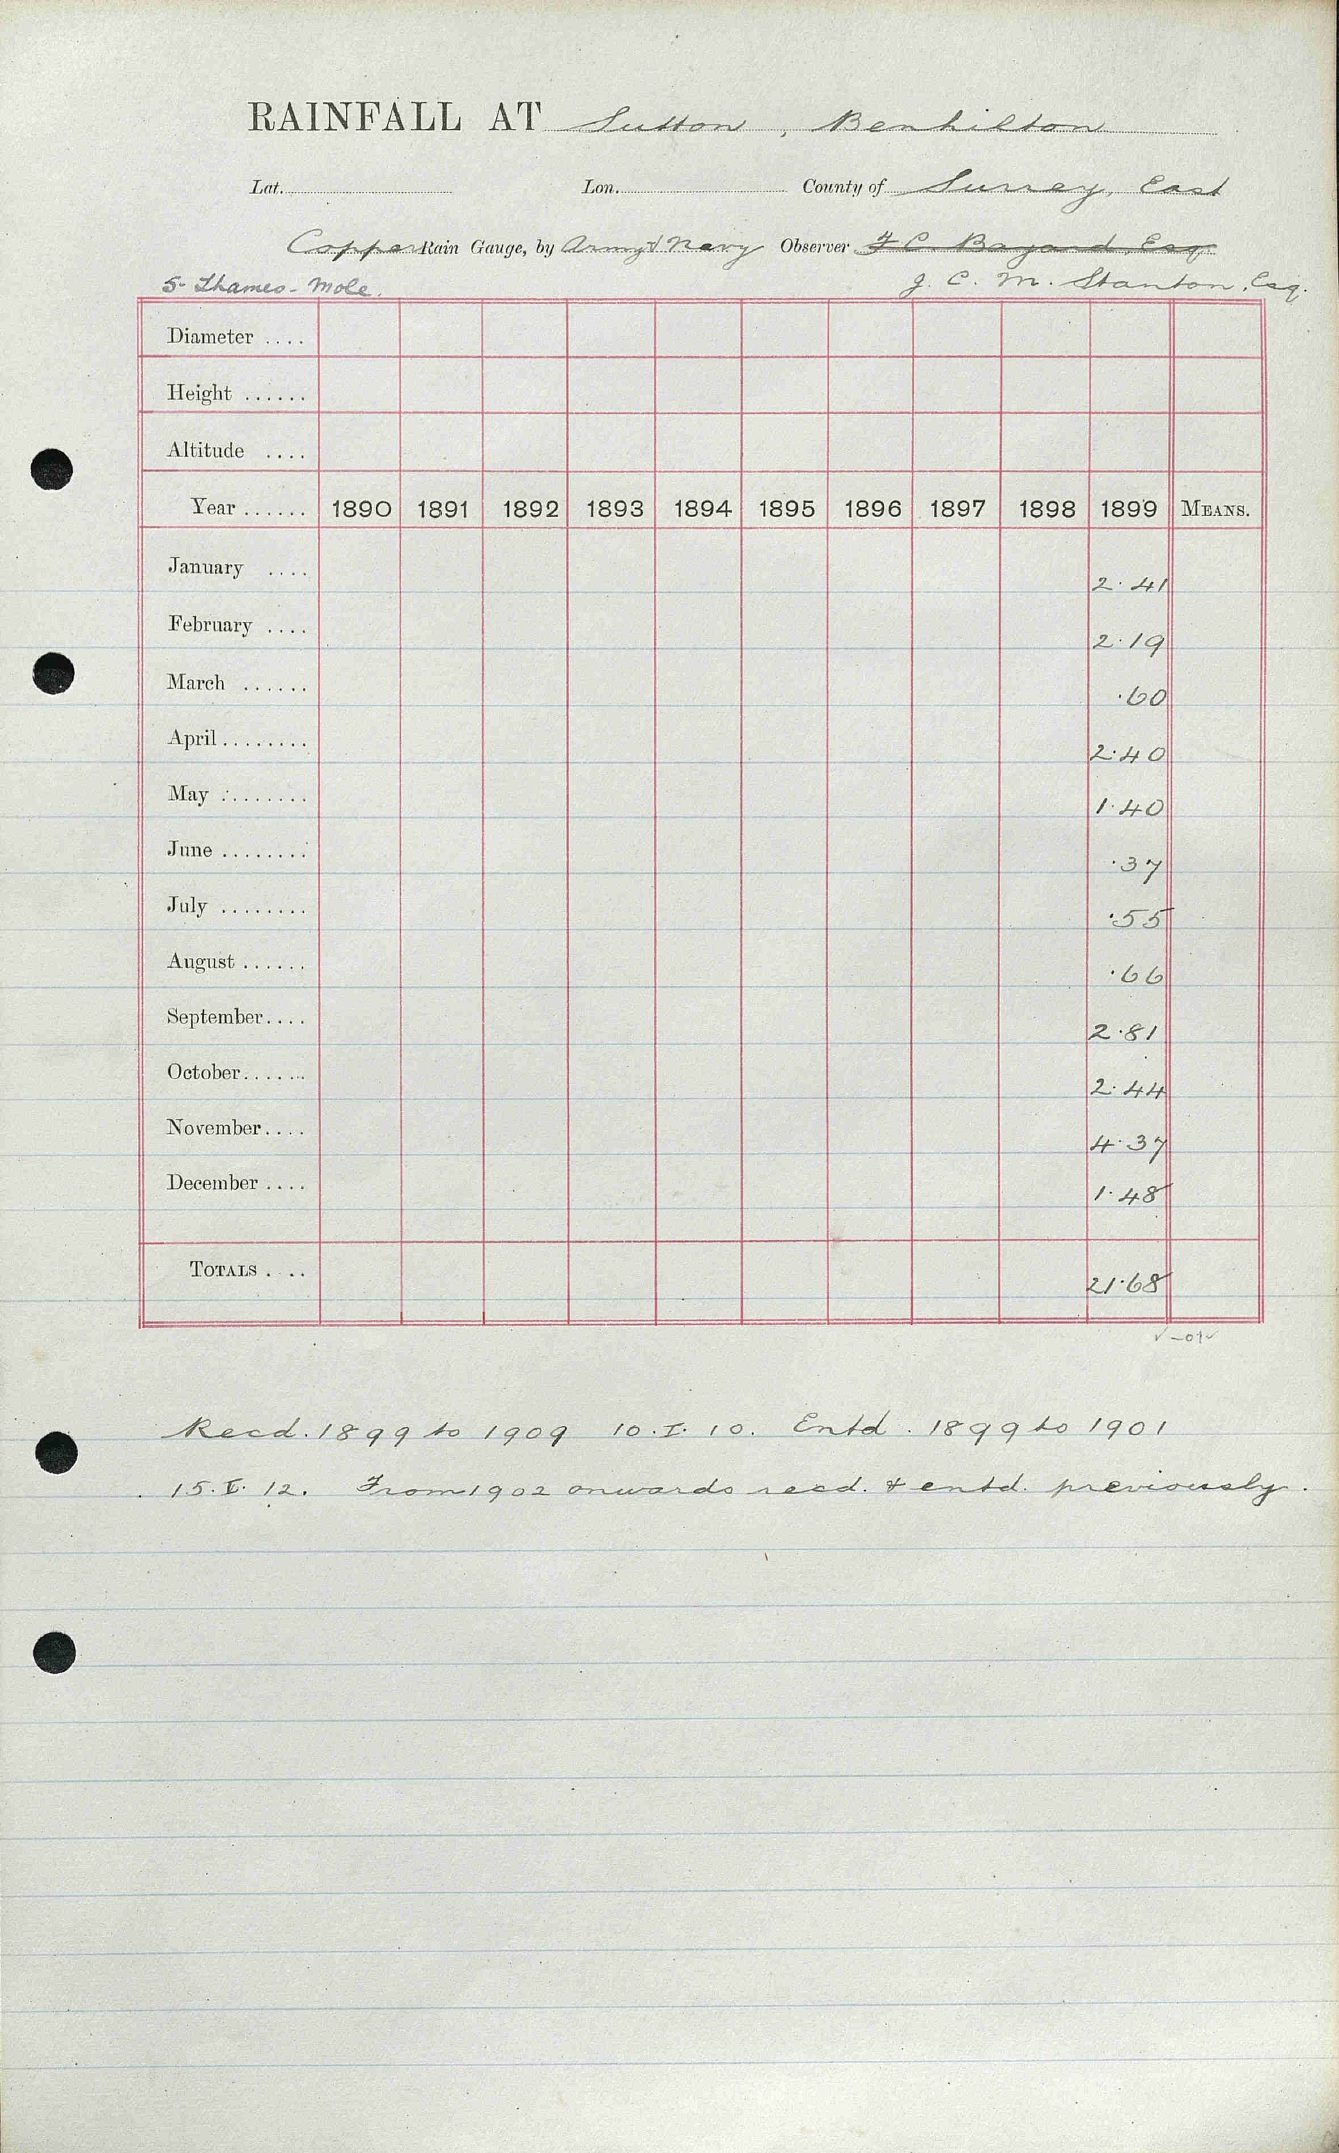 RAINFALL AT Sutton, Benhilton
Lat. Lon. County of Surrey, East
Copper Rain Gauge, by Army & Navy Observer F C. Bayard, Esq.
5- Thames - Mole. J. C. M. Stanton, Esq.
Diameter ....
Height ......
Altitude ....
Year ...... 1890 1891 1892 1893 1894 1895 1896 1897 1898 1899 MEANS.
January .... 2.41
February .... 2.19
March ...... .60
April ........ 2.40
May ........ 1.40
June ........ .37
July ........ .55
August ...... .66
September.... 2.81
October...... 2.44
November.... 4.37
December .... 1.48
TOTALS .... 21.68
Recd. 1899 to 1909 10.I.10. Entd. 1899 to 1901
15.I.12. From 1902 onwards recd. & entd. previously.